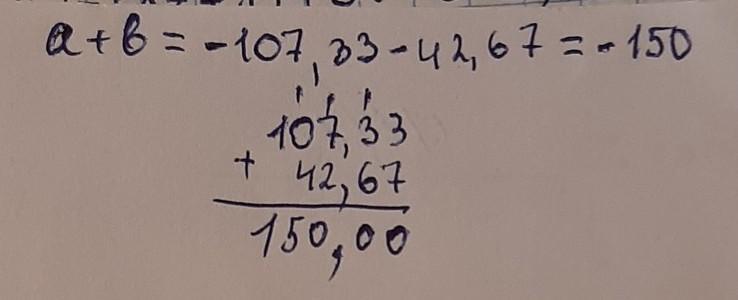 a + b = -107,33 - 42,67 = -150
107,33
+ 42,67
150,00